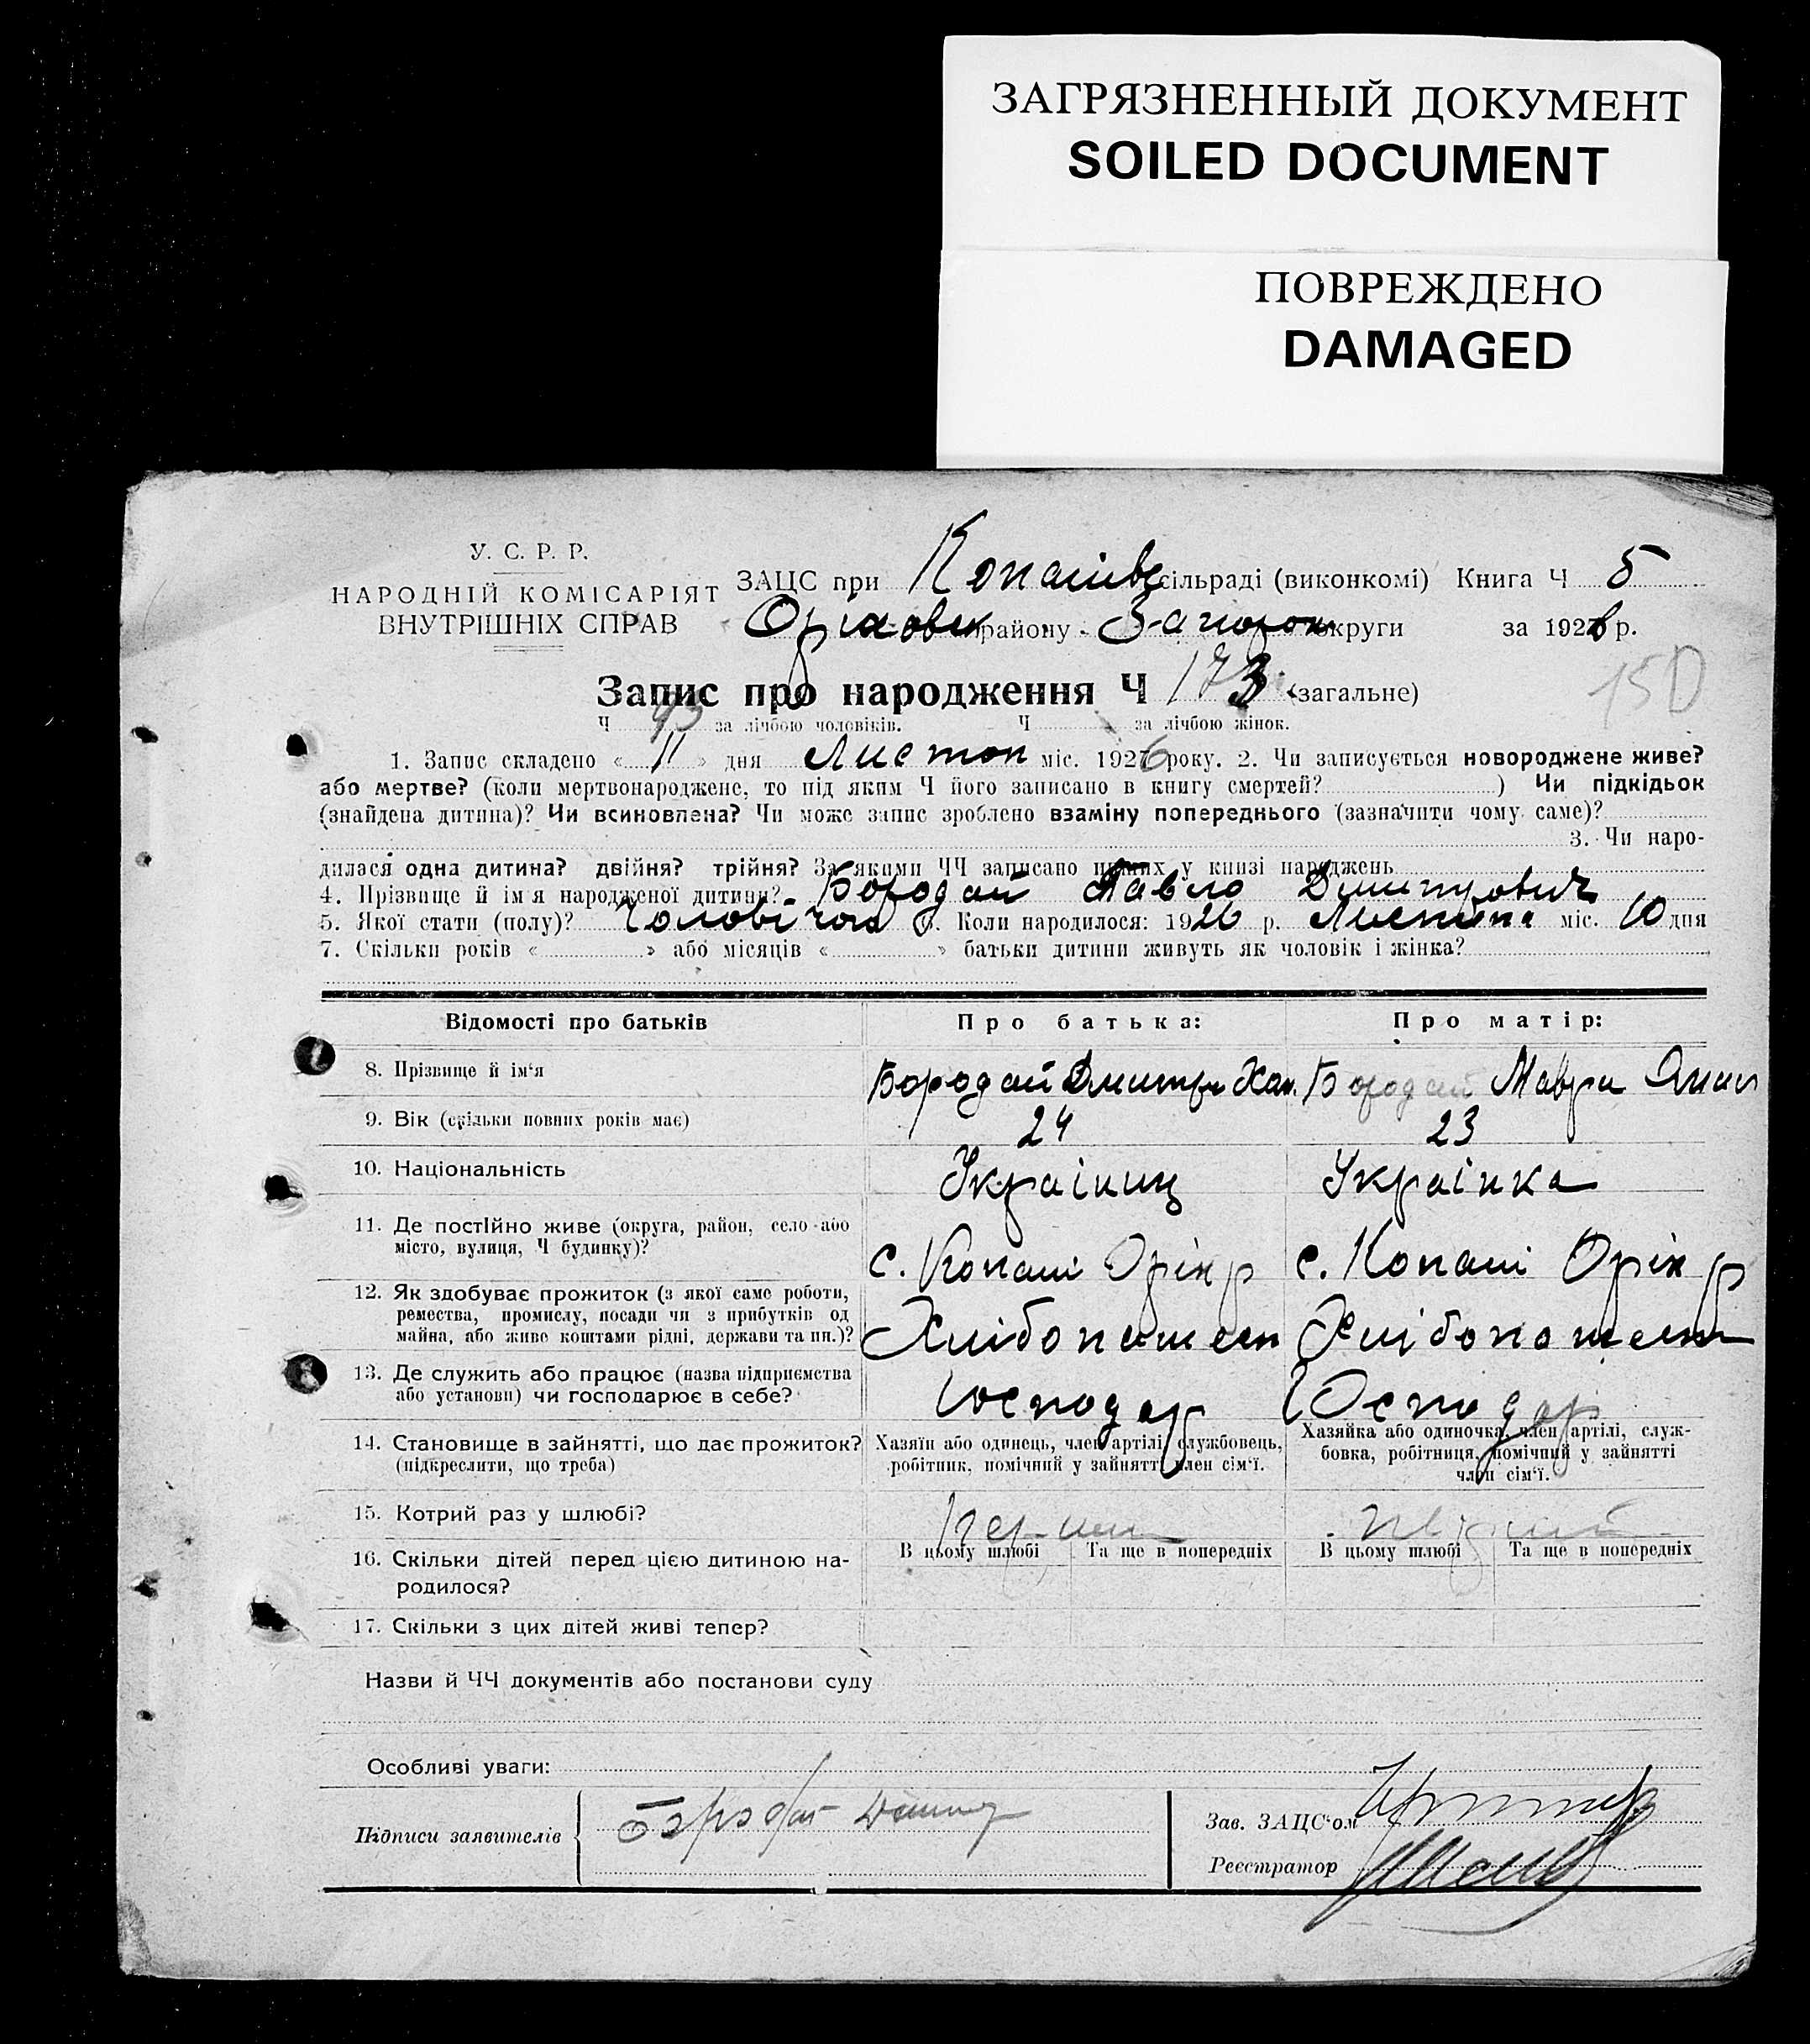 ЗАГРЯЗНЕННЫЙ ДОКУМЕНТ
SOILED DOCUMENT
ПОВРЕЖДЕНО
DAMAGED
У. С. Р. Р.
НАРОДНІЙ КОМІСАРІЯТ
ВНУТРІШНІХ СПРАВ
ЗАЦС при Копашівс сільраді (виконкомі) Книга Ч 5
Оріховск району Запорож округи за 1926 р.
Запис про народження Ч 173 (загальне)
150
Ч 93 за лічбою чоловіків. Ч за лічбою жінок.
1. Запис складено « 11 » дня Листоп міс. 1926 року. 2. Чи записується новороджене живе?
або мертве? (коли мертвонароджене, то під яким Ч його записано в книгу смертей? ) Чи підкідьок
(знайдена дитина)? Чи всиновлена? Чи може запис зроблено взаміну попереднього (зазначити чому саме)?
3. Чи наро-
дилася одна дитина? двійня? трійня? За якими ЧЧ записано инших у книзі народжень
4. Прізвище й ім'я народженої дитини? Бородай Павло Дмитрович
5. Якої стати (полу)? Чоловічої 6. Коли народилося: 1926 р. Листопа міс. 10 дня
7. Скільки років « » або місяців « » батьки дитини живуть як чоловік і жінка?
Відомості про батьків Про батька: Про матір:
8. Прізвище й ім'я Бородай Дмитри Хар. Бородай Мавра
9. Вік (скільки повних років має) 24 23
10. Національність Україниц Українка
11. Де постійно живе (округа, район, село або
місто, вулиця, Ч будинку)? с. Копані Оріх р с. Копані Оріх р
12. Як здобуває прожиток (з якої саме роботи,
ремества, промислу, посади чи з прибутків од
майна, або живе коштами рідні, держави та ин.)? Хлібопашен Хлібопашен
13. Де служить або працює (назва підприємства
або установи) чи господарює в себе? Господар Господар
14. Становище в зайнятті, що дає прожиток?
(підкреслити, що треба)
Хазяїн або одинець, член артілі, службовець,
робітник, помічний у зайнятті член сім'ї.
Хазяйка або одиночка, член артілі, служ-
бовка, робітниця, помічний у зайнятті
член сім'ї.
15. Котрий раз у шлюбі? Перший Перший
16. Скільки дітей перед цією дитиною на-
родилося?
В цьому шлюбі Та ще в попередніх В цьому шлюбі Та ще в попередніх
17. Скільки з цих дітей живі тепер?
Назви й ЧЧ документів або постанови суду
Особливі уваги:
Підписи заявителів Бородай Дмитр
Зав. ЗАЦС'ом
Реєстратор